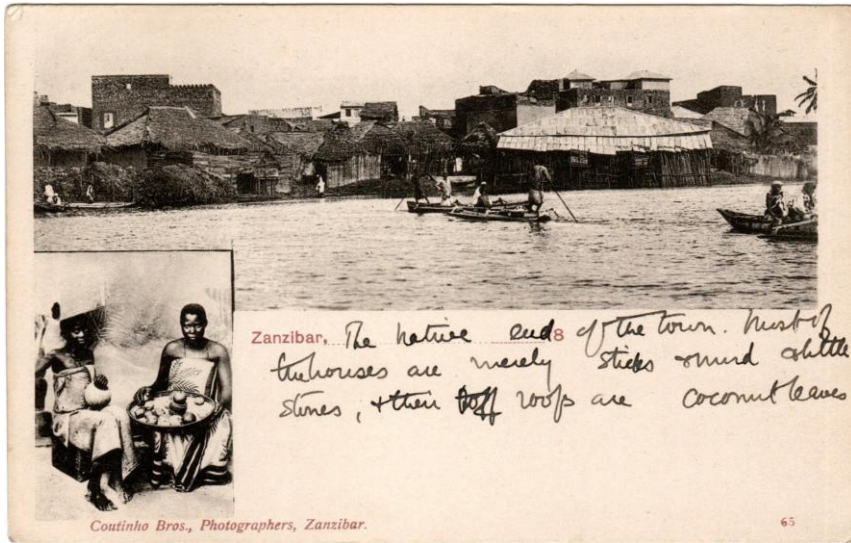 Zanzibar, The native end 8 of the town. Most of
the houses are merely sticks & mud & little
stones, & their roofs are coconut leaves
Coutinho Bros., Photographers, Zanzibar.
65